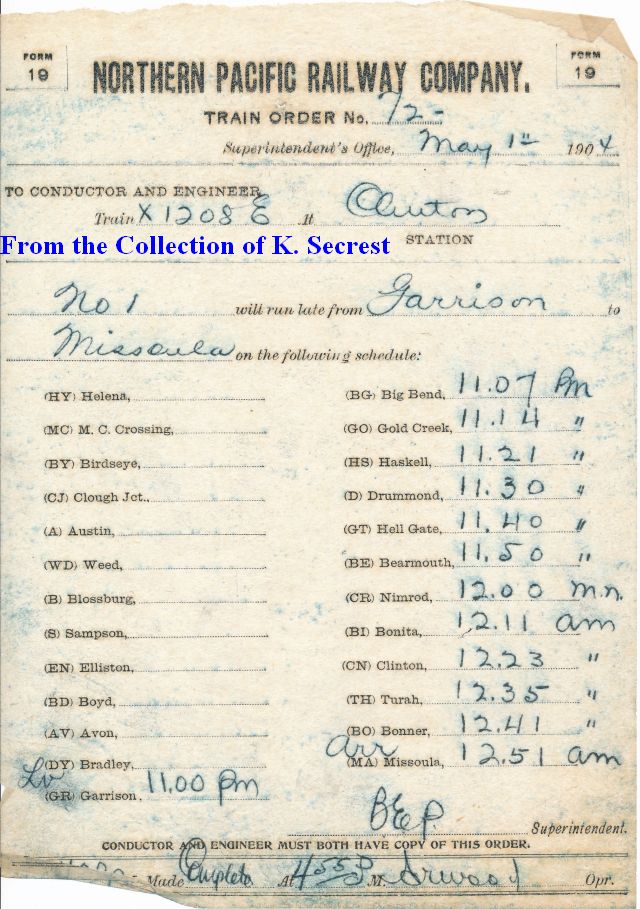 FORM 19
FORM 19
NORTHERN PACIFIC RAILWAY COMPANY.
TRAIN ORDER No. 72-
Superintendent's Office, May 1st 1904
TO CONDUCTOR AND ENGINEER
Train X 1208 E At Clinton
From the Collection of K. Secrest
STATION
No 1 will run late from Garrison to
Missoula on the following schedule:
(HY) Helena,
(MC) M. C. Crossing,
(BY) Birdseye,
(CJ) Clough Jct.,
(A) Austin,
(WD) Weed,
(B) Blossburg,
(S) Sampson,
(EN) Elliston,
(BD) Boyd,
(AV) Avon,
(DY) Bradley,
Lv
(GR) Garrison, 11.00 pm
(BG) Big Bend, 11.07 Pm
(GO) Gold Creek, 11.14 "
(HS) Haskell, 11.21 "
(D) Drummond, 11.30 "
(GT) Hell Gate, 11.40 "
(BE) Bearmouth, 11.50 "
(CR) Nimrod, 12.00 m.n.
(BI) Bonita, 12.11 am
(CN) Clinton, 12.23 "
(TH) Turah, 12.35 "
(BO) Bonner, 12.41 "
Arr
(MA) Missoula, 12.51 am
Superintendent.
CONDUCTOR AND ENGINEER MUST BOTH HAVE COPY OF THIS ORDER.
Made Complete At 455 P M. Opr.